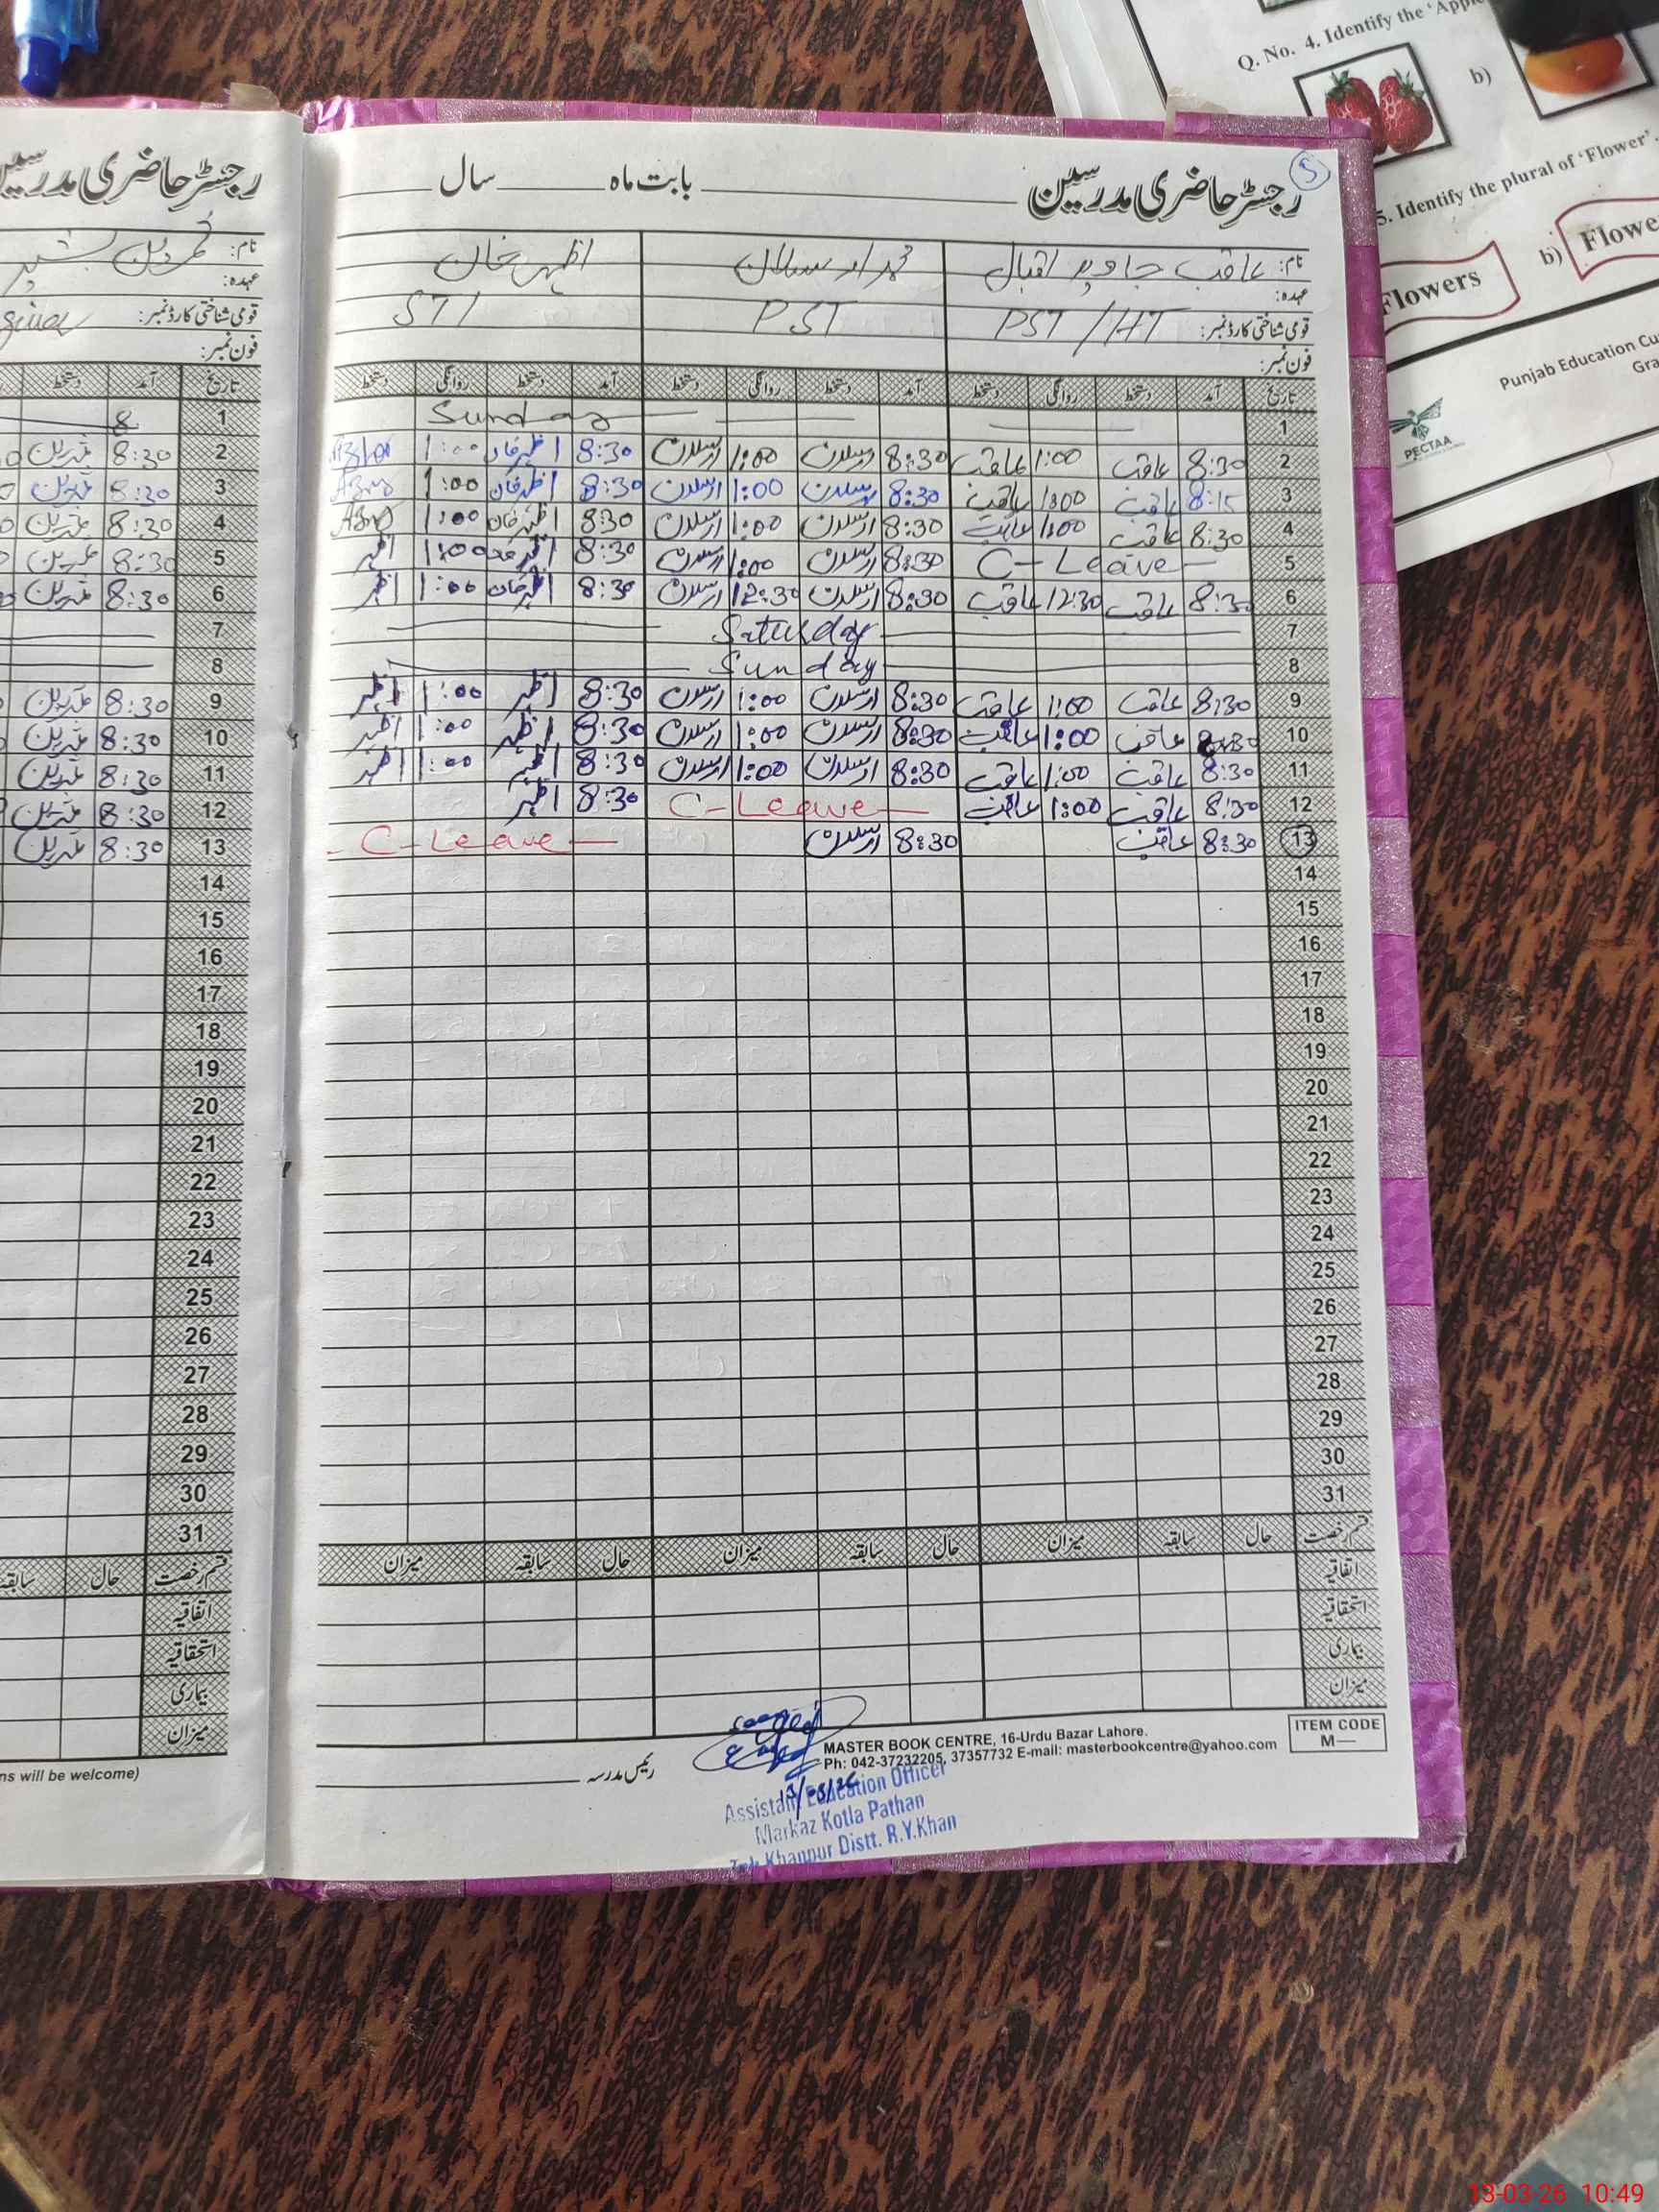 Q. No. 4. Identify the 'Apple
b)
5. Identify the plural of 'Flower'.
Flowers
b)
Flowe
Punjab Education Cu
Gra
PECTAA
رجسٹر حاضری مدرسین
5
رجسٹر حاضری مدرسین بابت ماه سال
نام: عاقب جاوید اقبال محمد ارسلان اظہر خان
عہدہ:
قومی شناختی کارڈ نمبر: PST/HT PST STI
فون نمبر:
تاریخ آمد دستخط روانگی دستخط آمد دستخط روانگی دستخط آمد دستخط روانگی دستخط
1 Sunday
2 8:30 عاقب 1:00 عاقب 8:30 ارسلان 1:00 ارسلان 8:30 اظہر خان 1:00
3 8:15 عاقب 1:00 عاقب 8:30 ارسلان 1:00 ارسلان 8:30 اظہر خان 1:00
4 8:30 عاقب 1:00 عاقب 8:30 ارسلان 1:00 ارسلان 8:30 اظہر خان 1:00
5 C-Leave 8:30 ارسلان 1:00 ارسلان 8:30 1:00 اظہر
6 8:30 عاقب 12:30 عاقب 8:30 ارسلان 12:30 ارسلان 8:30 اظہر خان 1:00 اظہر
7 Saturday
8 Sunday
9 8:30 عاقب 1:00 عاقب 8:30 ارسلان 1:00 ارسلان 8:30 اظہر 1:00 اظہر
10 8:30 عاقب 1:00 عاقب 8:30 ارسلان 1:00 ارسلان 8:30 اظہر 1:00 اظہر
11 8:30 عاقب 1:00 عاقب 8:30 ارسلان 1:00 ارسلان 8:30 اظہر 1:00 اظہر
12 8:30 عاقب 1:00 عاقب C-Leave 8:30 اظہر
13 8:30 عاقب 8:30 ارسلان C-Leave
14
15
16
17
18
19
20
21
22
23
24
25
26
27
28
29
30
31
قسم رخصت حال سابقہ میزان حال سابقہ میزان حال سابقہ میزان
اتفاقیہ
استحقاقیہ
بیماری
میزان
رئیس مدرسہ
MASTER BOOK CENTRE, 16-Urdu Bazar Lahore.
Ph: 042-37232205, 37357732 E-mail: masterbookcentre@yahoo.com
ITEM CODE
M—
13/03/26
Assistant Education Officer
Markaz Kotla Pathan
Khanpur Distt. R.Y.Khan
نام:
عہدہ:
قومی شناختی کارڈ نمبر:
فون نمبر:
تاریخ آمد دستخط
1 8
2 8:30
3 8:30
4 8:30
5 8:30
6 8:30
7
8
9 8:30
10 8:30
11 8:30
12 8:30
13 8:30
14
15
16
17
18
19
20
21
22
23
24
25
26
27
28
29
30
31
قسم رخصت حال سابقہ
اتفاقیہ
استحقاقیہ
بیماری
میزان
ns will be welcome)
13-03-26 10:49